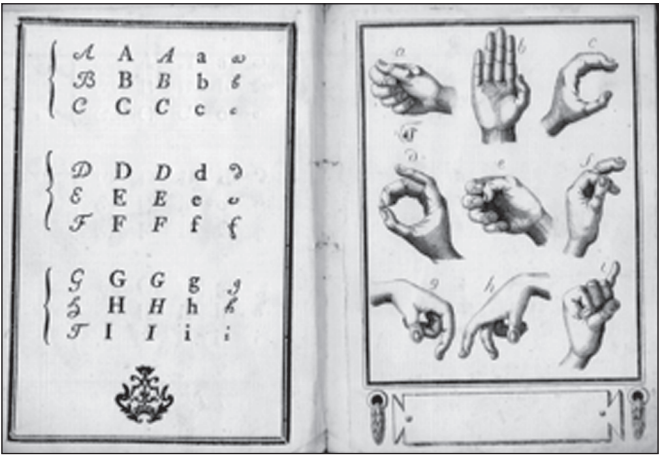 A A A a a
B B B b b
C C C c c
D D D d d
E E E e e
F F F f f
G G G g g
H H H h h
I I I i i
a b c
d e f
g h i